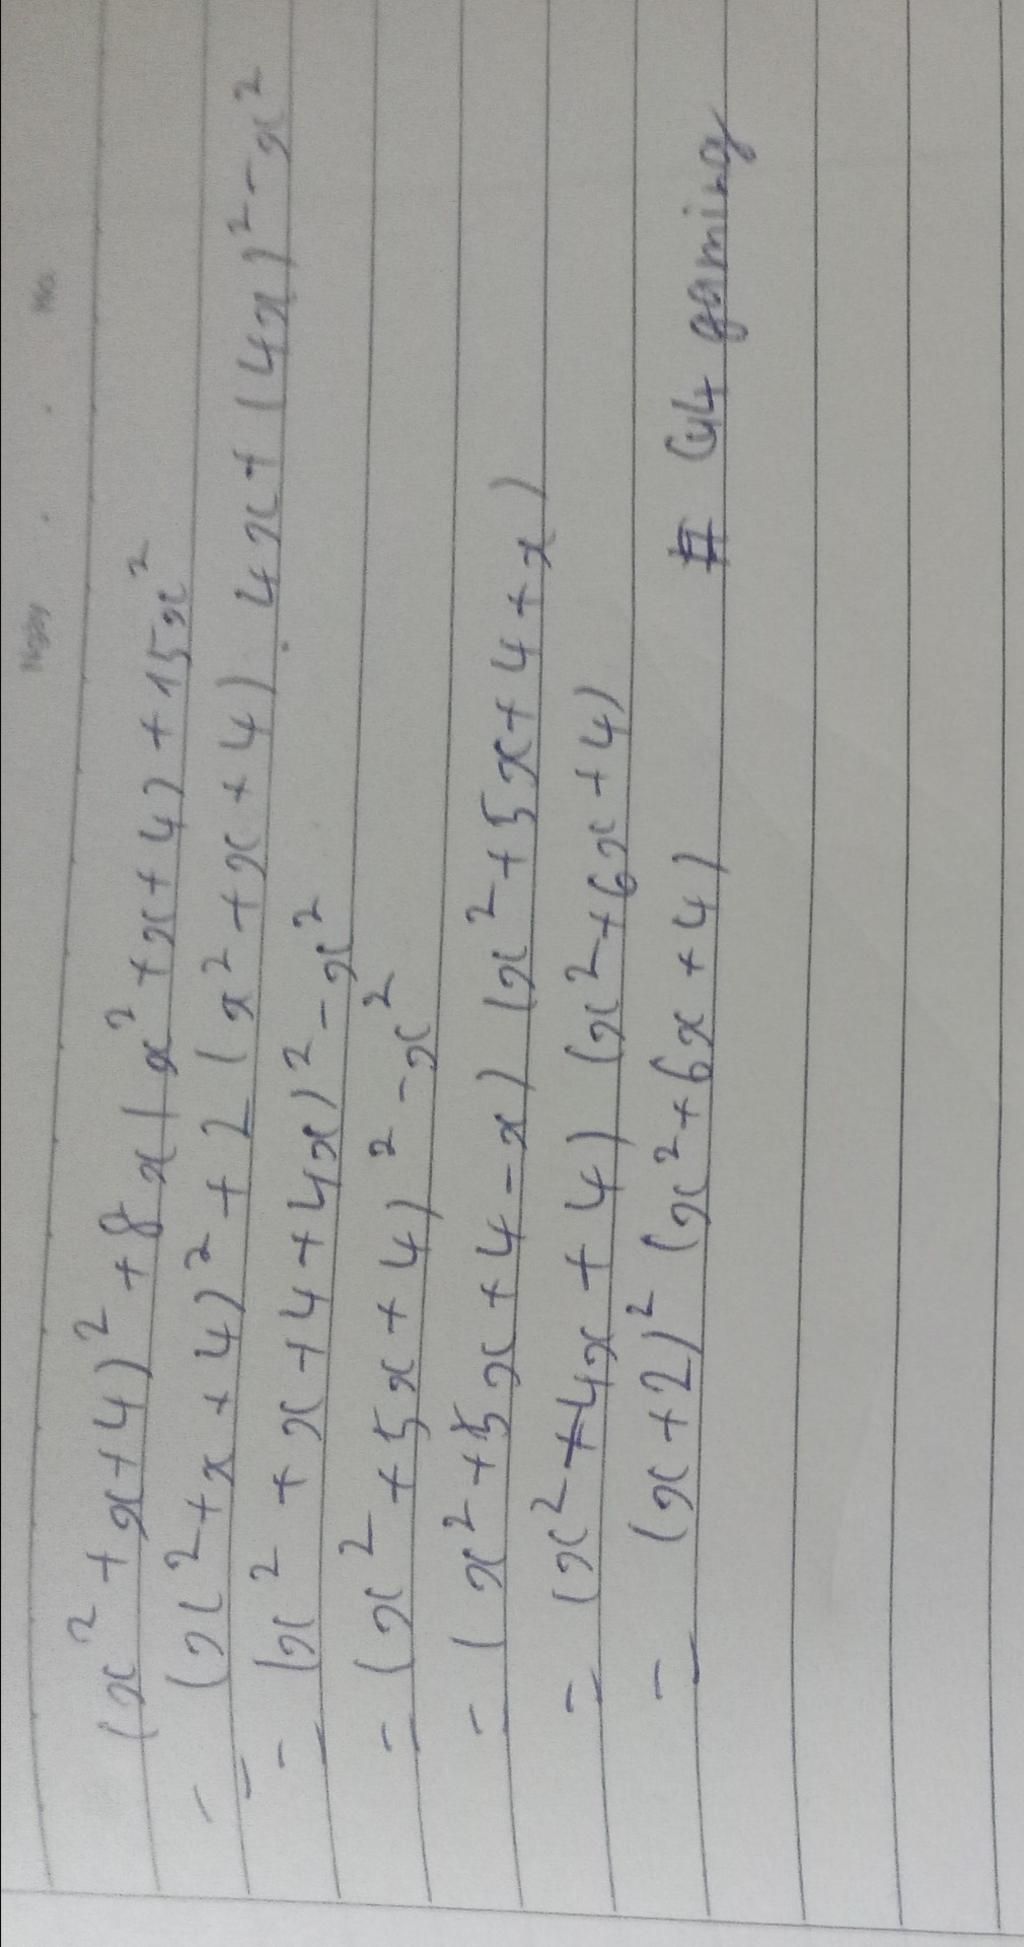 Ngày . . No.
(x² + x + 4)² + 8x(x² + x + 4) + 15x²
= (x² + x + 4)² + 2(x² + x + 4).4x + (4x)² - x²
= (x² + x + 4 + 4x)² - x²
= (x² + 5x + 4)² - x²
= (x² + 5x + 4 - x)(x² + 5x + 4 + x)
= (x² + 4x + 4)(x² + 6x + 4)
= (x + 2)² (x² + 6x + 4) # G44 gaming